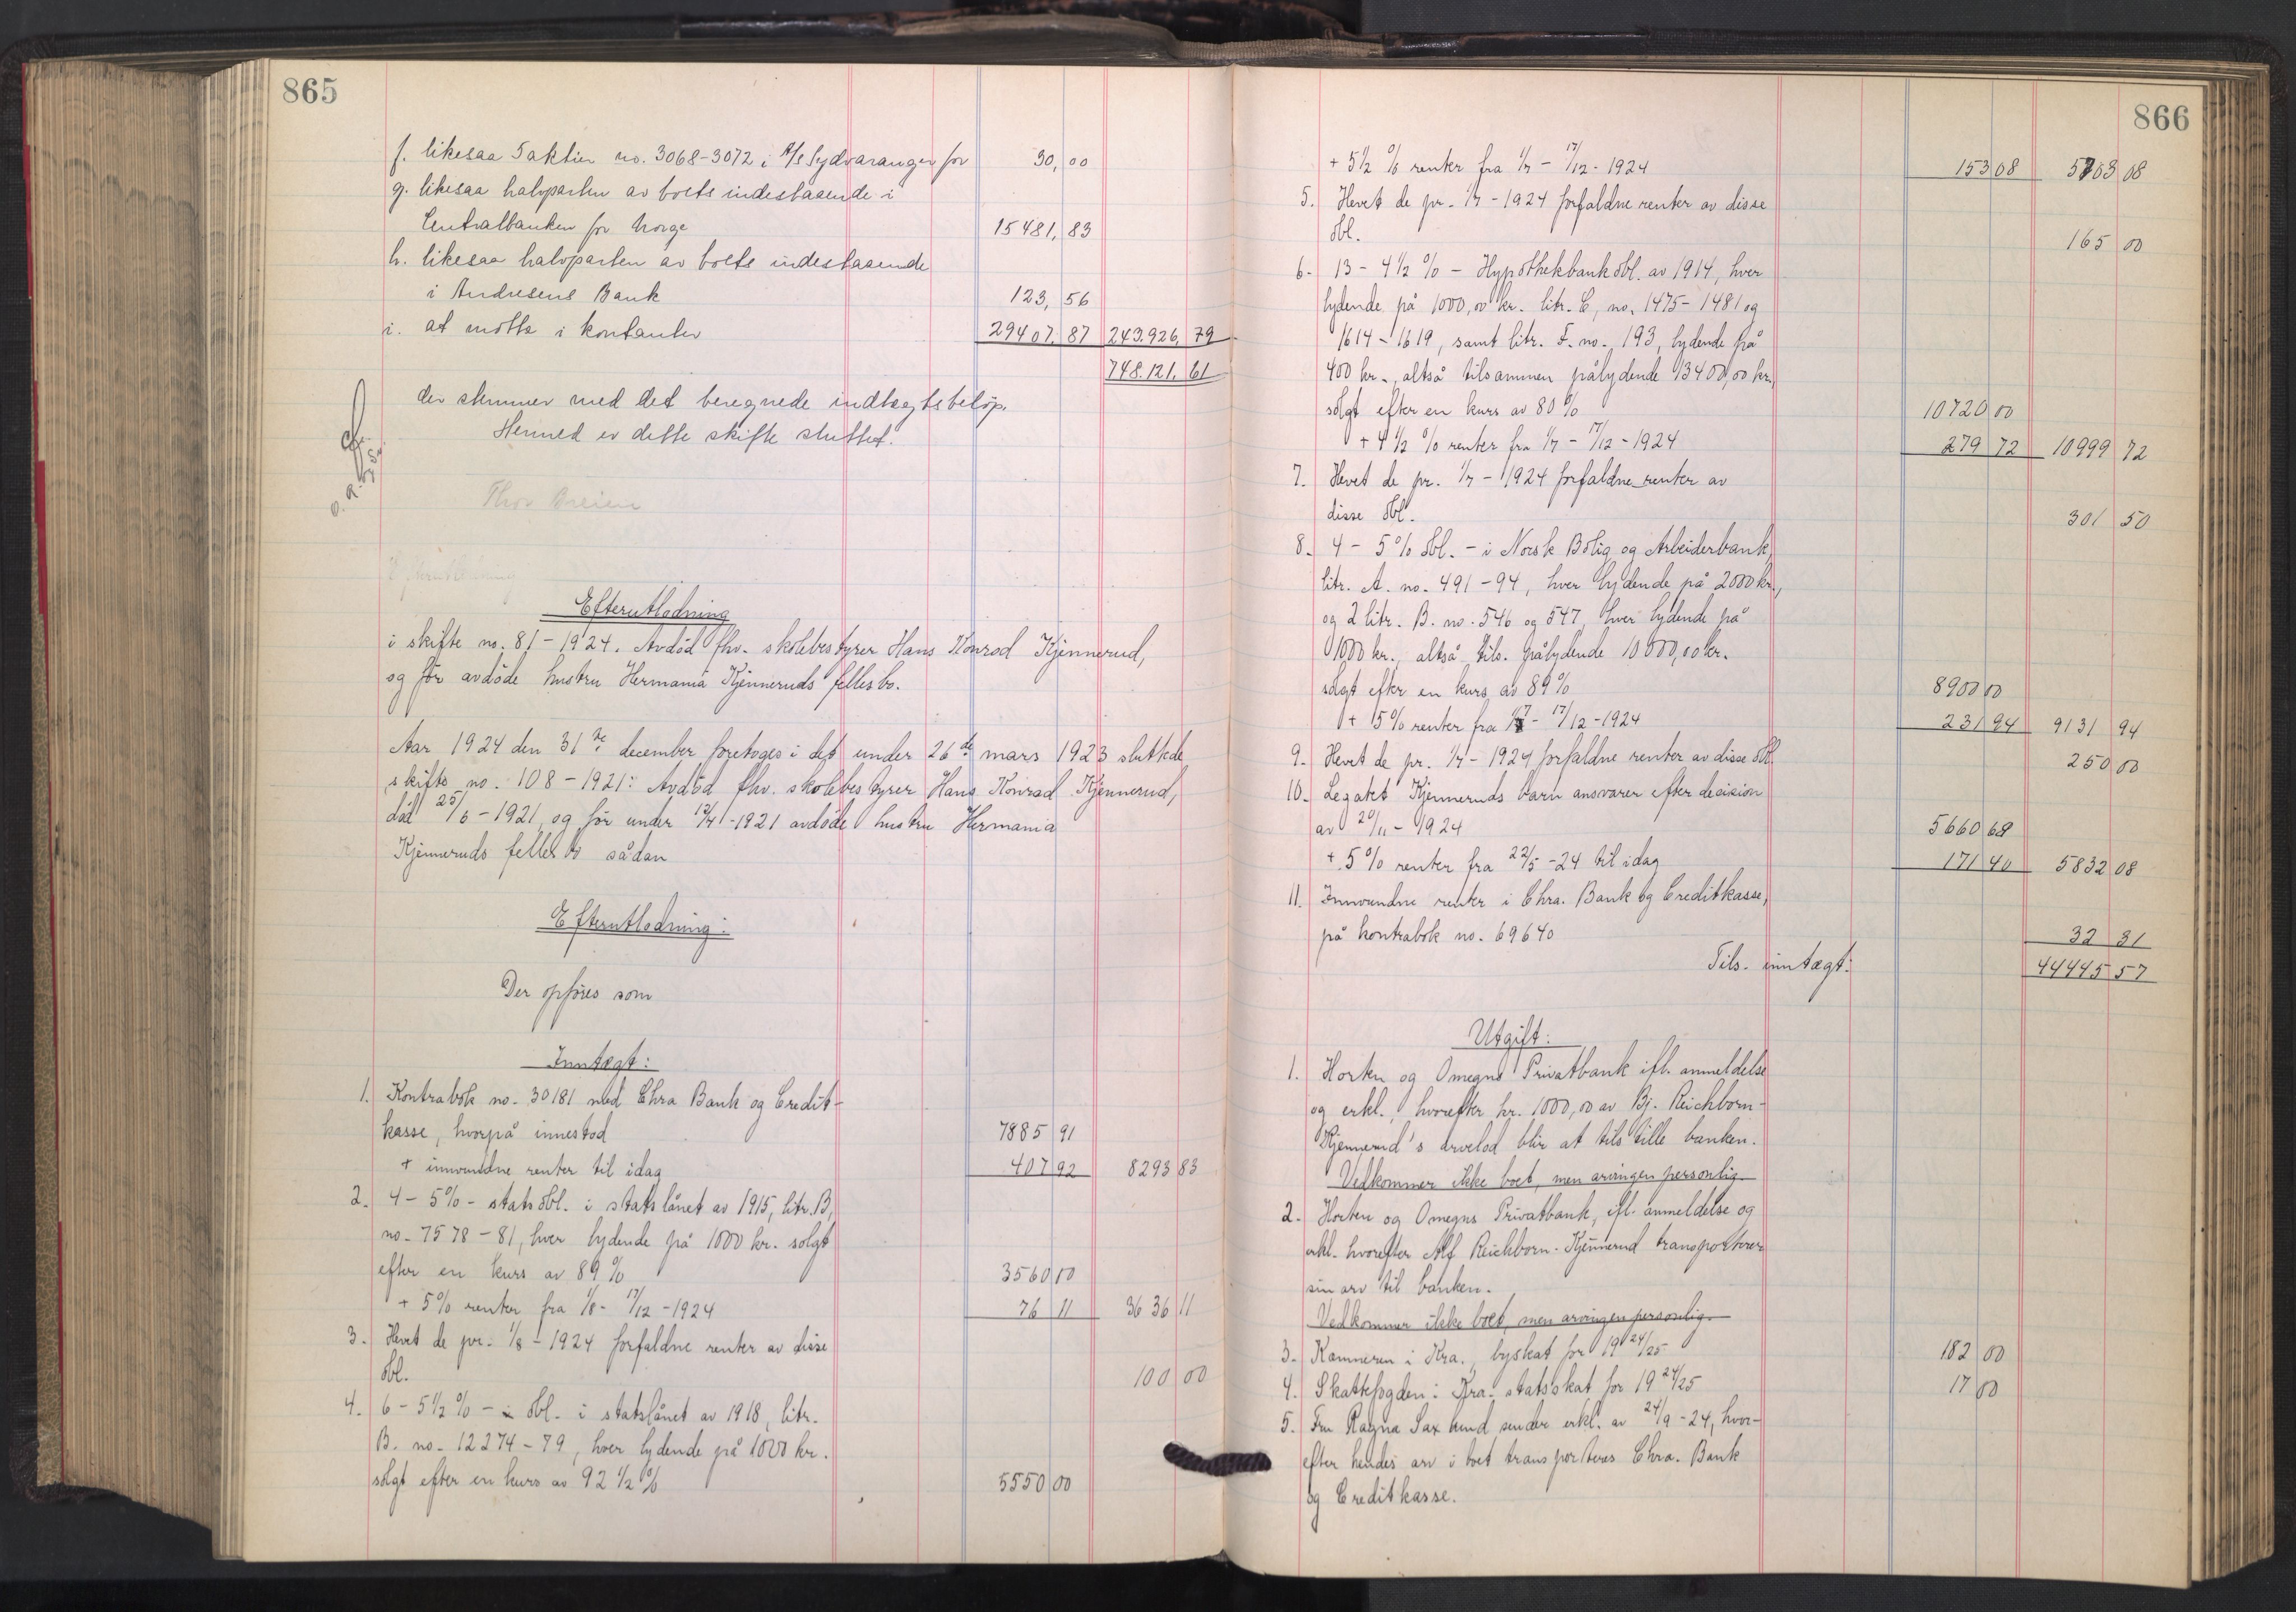 865
f. likesaa 5 aktier no. 3068-3072 i A/S Sydvaranger for 30,00
g. likesaa halvparten av boets indestaaende i
Centralbanken for Norge 15481,83
h. likesaa halvparten av boets indestaaende
i Andresens Bank 123,56
i. at motta i kontanter 29407.87 243.926,79
748.121,61
der stemmer med det beregnede indtægtsbeløp.
Hermed er dette skifte sluttet.
Thor Breien
Efterutlodning
i skifte no. 81 - 1924. Avdød fhv. skolebestyrer Hans Konrad Kjennerud,
og før avdøde hustru Hermania Kjenneruds fellesbo.
Aar 1924 den 31te december foretoges i det under 26de mars 1923 sluttede
skifte no. 108 - 1921: Avdød fhv. skolebestyrer Hans Konrad Kjennerud,
død 25/6 - 1921, og før under 12/4 - 1921 avdøde hustru Hermania
Kjenneruds fellesbo sådan
Efterutlodning:
Der opføres som
Inntægt:
1. Kontrabok no. 30181 med Chra Bank og Credit-
kasse, hvorpå innestod 7885 91
+ innvundne renter til idag 407 92 8293 83
2. 4 - 5% - statsobl. i statslånet av 1915, litr. B,
no. 7578 - 81, hver lydende på 1000 kr. solgt
efter en kurs av 89% 3560 00
+ 5% renter fra 1/8 - 17/12 - 1924 76 11 3636 11
3. Hevet de pr. 1/8 - 1924 forfaldne renter av disse
obl. 100 00
4. 6 - 5 1/2 % - obl. i statslånet av 1918, litr.
B. no. 12274 - 79, hver lydende på 1000 kr.
solgt efter en kurs av 92 1/2 % 5550 00
866
+ 5 1/2 % renter fra 1/7 - 17/12 - 1924 153 08 5703 08
5. Hevet de pr. 1/7 - 1924 forfaldne renter av disse
obl. 165 00
6. 13 - 4 1/2 % - Hypothekbankobl. av 1914, hver
lydende på 1000,00 kr. litr. C, no. 1475 - 1481 og
1614 - 1619, samt litr. F. no. 193, lydende på
400 kr., altså tilsammen pålydende 13400,00 kr.,
solgt efter en kurs av 80% 10720 00
+ 4 1/2 % renter fra 1/7 - 17/12 - 1924 279 72 10999 72
7. Hevet de pr. 1/7 - 1924 forfaldne renter av
disse obl. 301 50
8. 4 - 5% obl. - i Norsk Bolig og Arbeiderbank,
litr. A. no. 491 - 94, hver lydende på 2000 kr.,
og 2 litr. B. no. 546 og 547, hver lydende på
1000 kr., altså tils. pålydende 10000,00 kr.
solgt efter en kurs av 89% 8900 00
+ 5% renter fra 1/7 - 17/12 - 1924 231 94 9131 94
9. Hevet de pr. 1/7 - 1924 forfaldne renter av disse obl. 250 00
10. Legatet Kjenneruds barn ansvarer efter decision
av 20/11 - 1924 5660 68
+ 5% renter fra 22/5 - 24 til idag 171 40 5832 08
11. Innvundne renter i Chra. Bank og Creditkasse,
på kontrabok no. 69640 32 31
Tils. inntægt: 44445 57
Utgift:
1. Horten og Omegns Privatbank ifl. anmeldelse
og erkl., hvorefter kr. 1000,00 av Bj. Reichborn-
Kjennerud's arvelod blir at tilstille banken.
Vedkommer ikke boet, men arvingen personlig.
2. Horten og Omegns Privatbank, ifl. anmeldelse og
erkl. hvorefter Alf Reichborn-Kjennerud transporterer
sin arv til banken.
Vedkommer ikke boet, men arvingen personlig.
3. Kæmneren i Kra., byskat for 1924/25 182 00
4. Skattefogden i Kra. statsskat for 1924/25 17 00
5. Fru Ragna Saxlund sender erkl. av 24/9 - 24, hvor-
efter hendes arv i boet transporteres Chra. Bank
og Creditkasse.